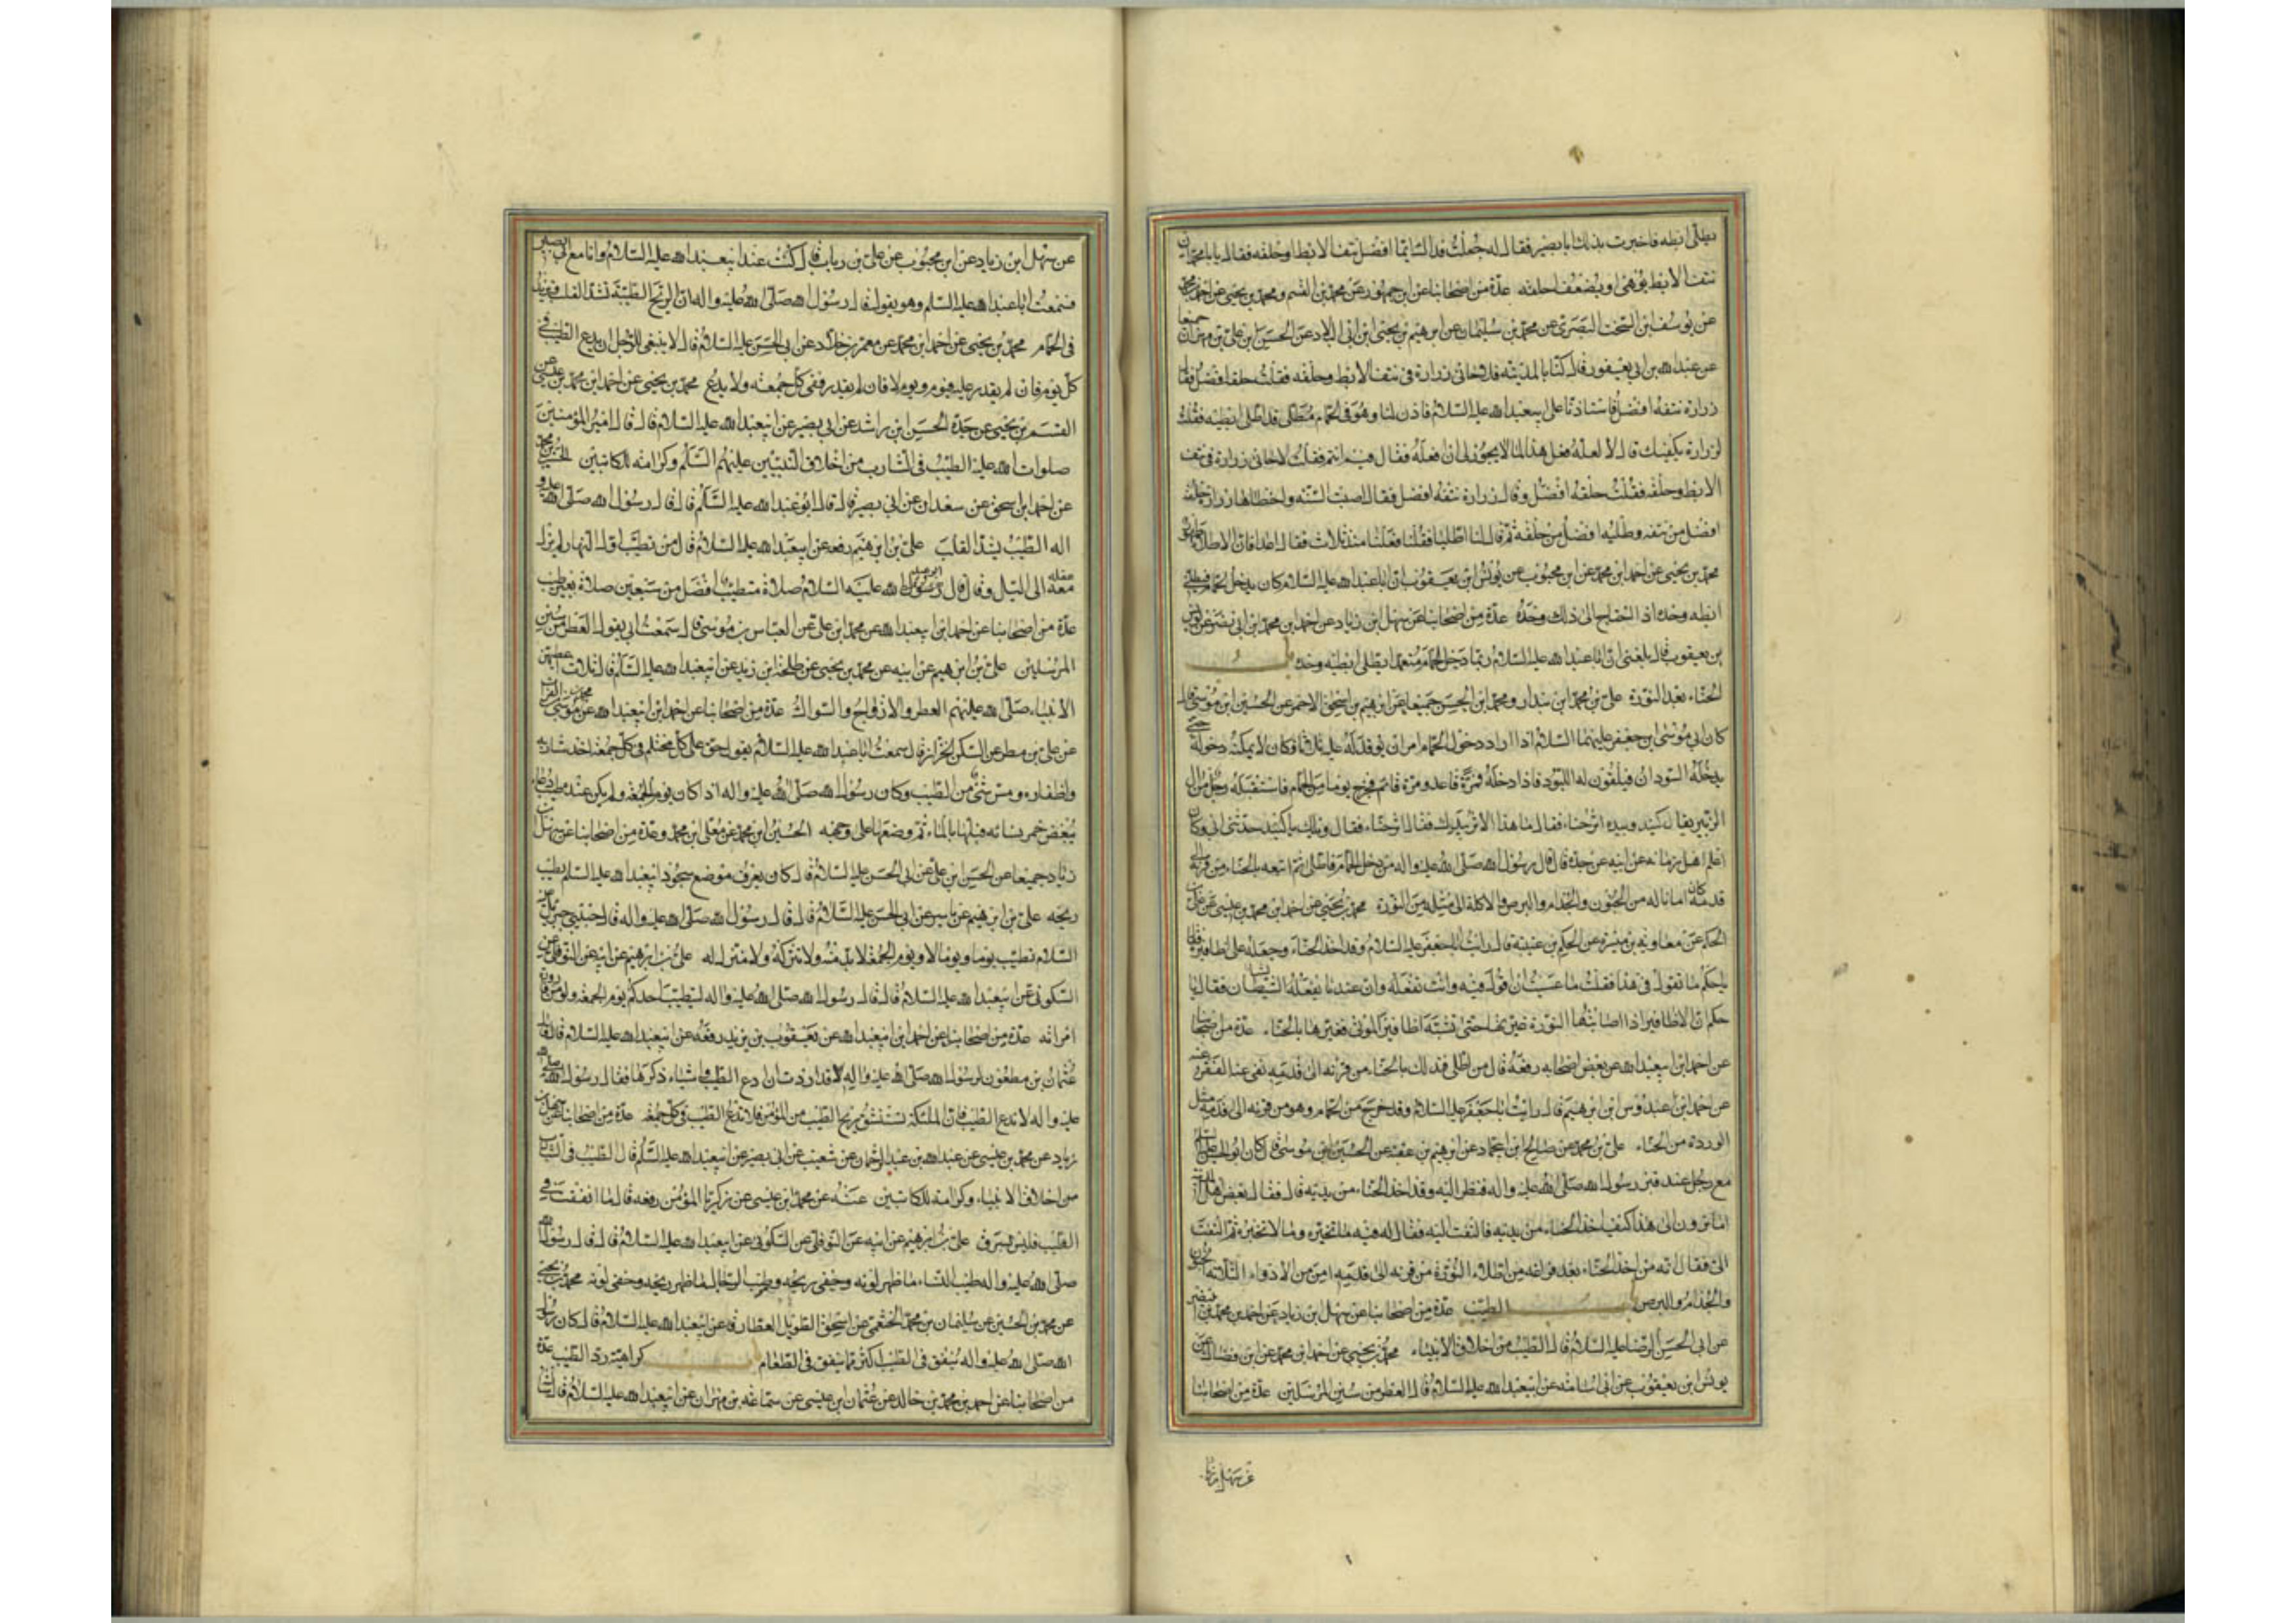 يطلى ابطه فاخبرت بذلك ابا بصير فقال له جعلت فداك ايما افضل نتف الابط او حلقه فقال يا با محمد ان
نتف الابط يوهى او يضعف احلقه عدّة من اصحابنا عن ابن جمهور عن محمد بن القسم و محمد بن يحيى عن احمد بن محمد
عن يوسف ابن السخت البصرى عن محمد بن سليمان عن ابرهيم بن يحيى ابن ابى البلاد عن الحسين بن على بن مهران جميعا
عن عبد الله بن ابى يعفور قال كنا بالمدينة فلاحانى زرارة فى نتف الابط وحلقه فقلت حلقه افضل فقال
زرارة نتفه افضل فاستاذنا على ابيعبد الله عليه السلام فاذن لنا وهو فى الحمام مطلى قد اطلى ابطيه فقلت
لزرارة يكفيك قال لا لعله فعل هذا لما لا يجوز لى ان افعله فقال فيم انتم فقلت لاحانى زرارة فى نتف
الابط وحلقه فقلت حلقه افضل وقال زرارة نتفه افضل فقال اصبت السنّة واخطاها زرارة حلقه
افضل من نتفه وطليه افضل من حلقه ثم قال لنا اطليا فقلنا فعلنا منذ ثلاث فقال اعيدا فان الاطلاء طهور
محمد بن يحيى عن احمد ابن محمد عن ابن محبوب عن يونس ابن يعقوب ان ابا عبد الله عليه السلام كان يدخل الحمام فيطلى
ابطه وحده اذا احتاج الى ذلك وحده عدّة من اصحابنا عن سهل ابن زياد عن احمد بن محمد ابن ابى نصر عن يونس
بن يعقوب قال بلغنى ان ابا عبد الله عليه السلام ربما دخل الحمام متعمدا يطلى ابطيه وحده باب
الحناء بعد النورة على بن محمد ابن بندار و محمد ابن الحسن جميعا عن ابرهيم بن اسحق الاحمر عن الحسين ابن موسى قال
كان ابى موسى ابن جعفر عليهما السلام اذا اراد دخول الحمام امر ان يوقد له عليه ثلاثا وكان لا يمكنه دخوله حتى
يدخله السودان فيلقون له اللبود فاذا دخله فمرّة قاعد ومرة قائم فخرج يوما من الحمام فاستقبله رجل من آل
الزبير يقال له كنيد وبيده اثر حناء فقال ما هذا الاثر بيدك فقال اثر حناء فقال ويلك يا كنيد حدثنى ابى وكان
اعلم اهل زمانه عن ابيه عن جده قال قال رسول الله صلى الله عليه واله من دخل الحمام فاطلى ثم اتبعه بالحناء من قرنه الى
قدمه كان امانا له من الجنون والجذام والبرص والاكلة الى مثله من النورة محمد بن يحيى عن احمد ابن محمد بن عيسى عن على بن
الحكم عن معاوية بن ميسرة عن الحكم بن عتيبة قال رايت ابا جعفر عليه السلام وقد اخذ الحناء وجعله على اظافيره فقال
يا حكم ما تقول فى هذا فقلت ما عسيت ان اقول فيه وانت تفعله وان عندنا يفعله الشبان فقال يا
حكم ان الاظافير اذا اصابتها النورة غيرتها حتى تشبه اظافير الموتى فغيرها بالحناء عدّة من اصحابنا
عن احمد ابن ابيعبد الله عن بعض اصحابه رفعه قال من اطلى فتدلك بالحناء من قرنه الى قدميه نفى عنه الفقر عنه
عن احمد ابن عبدوس ابن ابرهيم قال رايت ابا جعفر عليه السلام وقد خرج من الحمام وهو من قرنه الى قدمه مثل
الوردة من الحناء على بن محمد عن صالح ابن ابى حماد عن ابرهيم بن عقبة عن الحسين بن موسى قال كان ابو الحسن عليه السلام
مع رجل عند قبر رسول الله صلى الله عليه واله فنظر اليه وقد اخذ الحناء من يديه قال فقال بعض اهل المدينة
اما ترون الى هذا كيف اخذ الحناء من يديه فالتفت اليه فقال له فيه ما تخبره وما لا تخبره ثم التفت
الىّ فقال انه من اخذ الحناء بعد فراغه من اطلاء النورة من قرنه الى قدميه امن من الادواء الثلاثة الجنون
والجذام والبرص باب الطيب عدّة من اصحابنا عن سهل بن زياد عن احمد بن محمد بن ابى نصر
عن ابى الحسن الرضا عليه السلام قال الطيب من اخلاق الانبياء محمد بن يحيى عن احمد ابن محمد عن ابن فضال عن
يونس ابن يعقوب عن ابى اسامة عن ابيعبد الله عليه السلام قال العطر من سنن المرسلين عدّة من اصحابنا
عن سهل ابن زياد
عن سهل ابن زياد عن ابن محبوب عن على بن رياب قال كنت عند ابيعبد الله عليه السلام وانا مع ابى بصير
فسمعت ابا عبد الله عليه السلم وهو يقول قال رسول الله صلى الله عليه واله ان الريح الطيبة تشد القلب وتزيد
فى الجماع محمد بن يحيى عن احمد ابن محمد عن معمر بن خلاد عن ابى الحسن عليه السلام قال لا ينبغى للرجل ان يدع الطيب فى
كل يوم فان لم يقدر عليه فيوم ويوم لا فان لم يقدر ففى كل جمعة ولا يدع محمد بن يحيى عن احمد ابن محمد بن عيسى عن
القسم بن يحيى عن جده الحسن ابن راشد عن ابى بصير عن ابيعبد الله عليه السلام قال قال امير المؤمنين
صلوات الله عليه الطيب فى الشارب من اخلاق النبيين عليهم السلم وكرامة للكاتبين الحسين بن محمد
عن احمد ابن اسحق عن سعدان عن ابى بصير قال قال ابو عبد الله عليه السلم قال قال رسول الله صلى الله عليه و
اله الطيب يشد القلب على بن ابرهيم رفعه عن ابيعبد الله عليه السلام قال من تطيب اول النهار لم يزل
عقله معه الى الليل وقال قال ابو عبد الله عليه السلام صلاة متطيب افضل من سبعين صلاة بغير طيب
عدّة من اصحابنا عن احمد ابن ابيعبد الله عن محمد ابن على عن العباس بن موسى قال سمعت ابى يقول العطر من سنن
المرسلين على بن ابرهيم عن ابيه عن محمد بن يحيى عن طلحة ابن زيد عن ابيعبد الله عليه السلم قال ثلاث اعطيهن
الانبياء صلى الله عليهم العطر والازواج والسواك عدّة من اصحابنا عن احمد ابن ابيعبد الله عن موسى بن الفرات
عن على بن مطر عن السكن الخزاز قال سمعت ابا عبد الله عليه السلام يقول حق على كل محتلم فى كل جمعة اخذ شاربه
واظفاره ومس شئ من الطيب وكان رسول الله صلى الله عليه واله اذا كان يوم الجمعة ولم يكن عنده طيب دعا
ببعض خمر نسائه فبلها بالماء ثم وضعها على وجهه الحسين ابن محمد عن معلى ابن محمد وعدة من اصحابنا عن سهل بن
زياد جميعا عن الحسن ابن على عن ابى الحسن عليه السلام قال كان يعرف موضع سجود ابيعبد الله عليه السلم بطيب
ريحه على بن ابرهيم عن ياسر عن ابى الحسن عليه السلام قال قال رسول الله صلى الله عليه واله قال حبيبى جبرئيل عليه
السلام تطيب يوما ويوما لا ويوم الجمعة لا بد منه ولا تتركه ولا مترك له على بن ابرهيم عن ابيه عن النوفلى عن
السكونى عن ابيعبد الله عليه السلام قال قال رسول الله صلى الله عليه واله ليتطيب احدكم يوم الجمعة ولو من قارورة
امراته عدّة من اصحابنا عن احمد ابن ابيعبد الله عن يعقوب بن يزيد رفعه عن ابيعبد الله عليه السلام قال قال
عثمان بن مظعون لرسول الله صلى الله عليه واله قد اردت ان ادع الطيب واشياء ذكرها فقال رسول الله صلى الله
عليه واله لا تدع الطيب فان الملئكة تستنشق ريح الطيب من المؤمن فلا تدع الطيب فى كل جمعة عدّة من اصحابنا عن سهل بن
زياد عن محمد بن عيسى عن عبد الله بن عبد الرحمان عن شعيب عن ابى بصير عن ابيعبد الله عليه السلم قال الطيب فى الشارب
من اخلاق الانبياء وكرامة للكاتبين عنه عن محمد ابن عيسى عن زكريا المؤمن رفعه قال ما انفقت فى
الطيب فليس بسرف على بن ابرهيم عن ابيه عن النوفلى عن السكونى عن ابيعبد الله عليه السلام قال قال رسول الله
صلى الله عليه واله طيب النساء ما ظهر لونه وخفى ريحه وطيب الرجال ما ظهر ريحه وخفى لونه محمد بن يحيى
عن محمد بن الحسين عن سليمان بن محمد الخثعمى عن اسحق الطويل العطار عن ابيعبد الله عليه السلام قال كان رسول
الله صلى الله عليه واله ينفق فى الطيب اكثر مما ينفق فى الطعام باب كراهية رد الطيب عدة
من اصحابنا عن احمد بن محمد بن خالد عن عثمان ابن عيسى عن سماعة بن مهران عن ابيعبد الله عليه السلام قال سالته